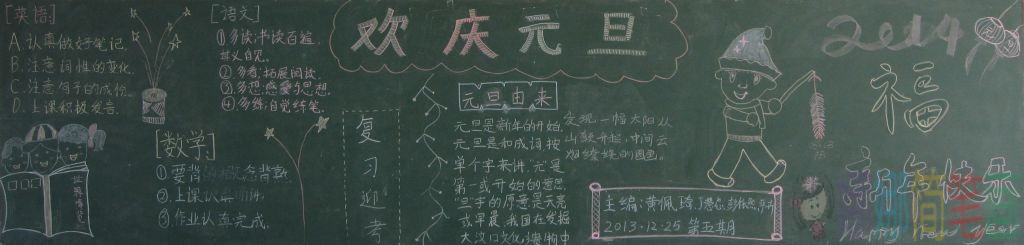 [英语]
A.认真做好笔记.
B.注意词性的变化.
C.注意句子的成份.
D.上课积极发言.
[语文]
①多读:书读百遍,
其义自见.
②多看:拓展阅读.
③多想:感爱与思想.
④多练:自觉练笔.
[数学]
①要背
②上课认真
③作业认真完成.
欢庆元旦
复习迎考
元旦由来
元旦是新年的开始,
元旦是和成词,按
单个字来讲,"元"是
第一或开始的意思,
"旦"字的原意是天亮
或早晨,我国在发掘
大汶口文化遗物中
发现一幅太阳从
山颠升起,中间云
烟缭绕的图画.
主编:黄佩琦
2013.12.25 第五期
2014
福
新年快乐
Happy new year